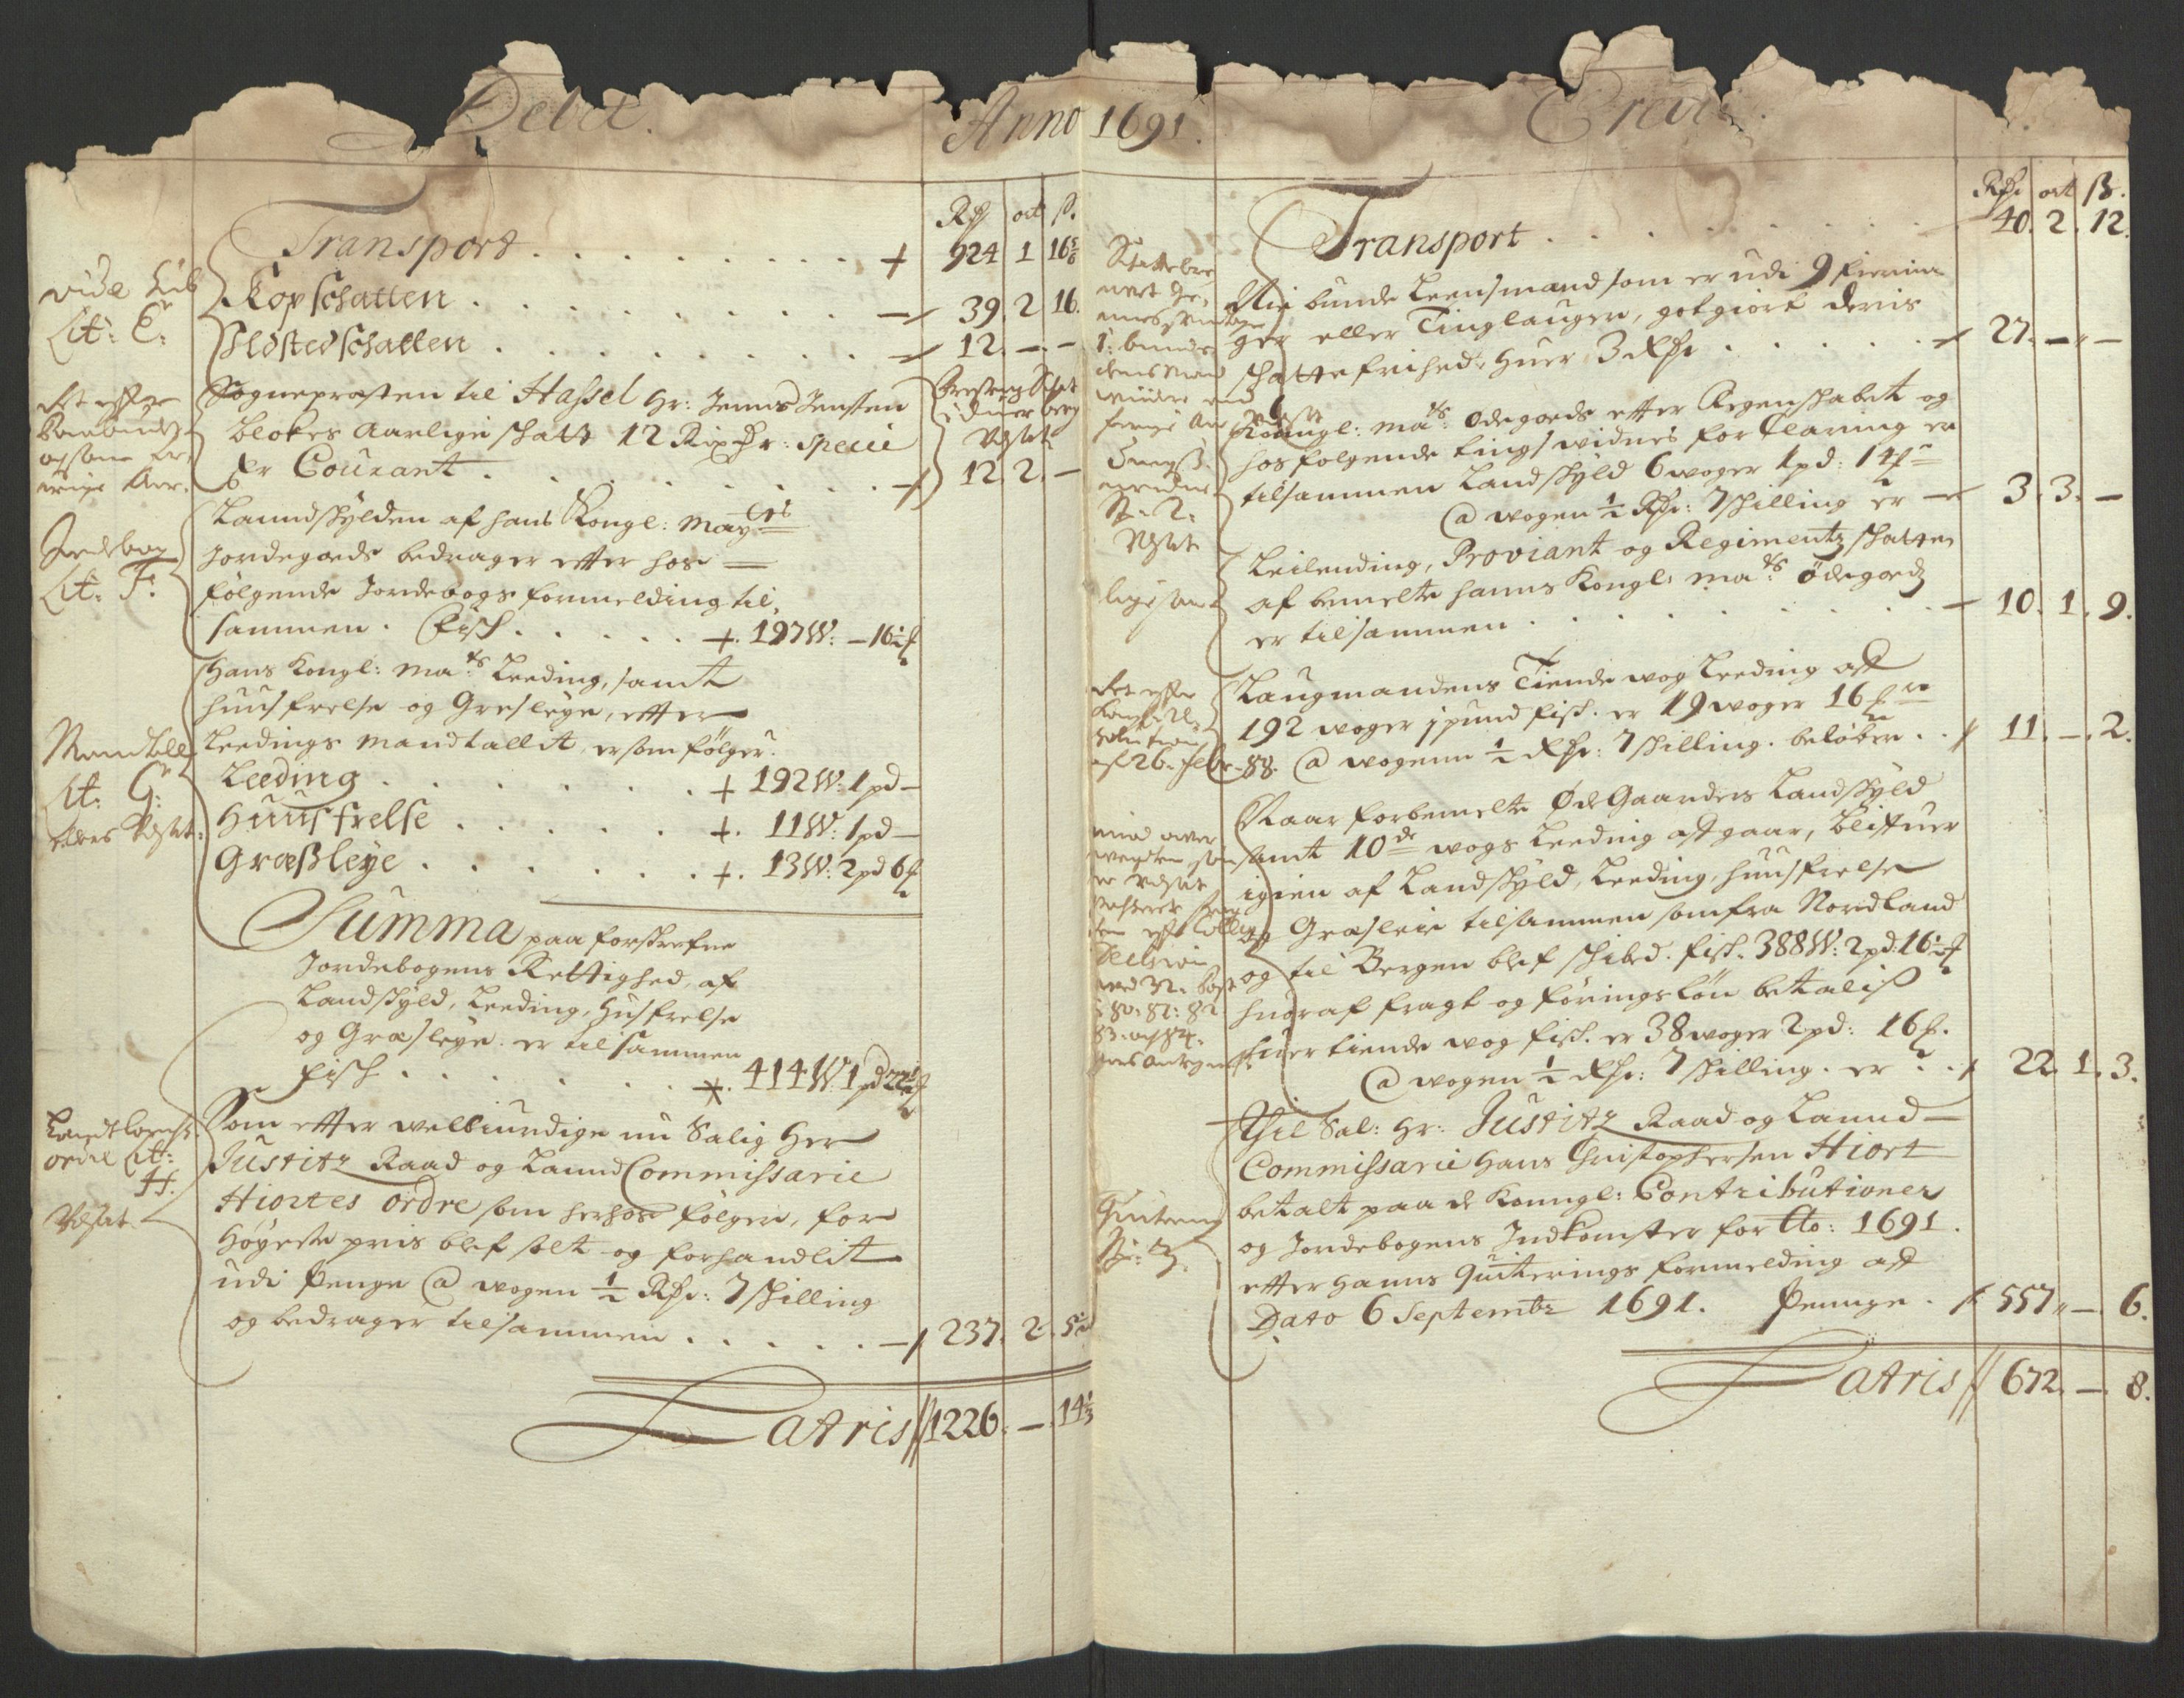 Debet.
Anno
Rdr ort s.
Transport . . . + 924 1 16 5/6
vide sub Lit: E:
Kopschatten . . . 39. 2 16.
Ildstedschatten . . . 12. — —
Sognepresten til Hassel Hr: Jens Jensen
Blokes Aarlige schatt 12 Rixdr: specie
er Courant . . . 12. 2. —
Jordebog
Lit: F:
Landskylden af hans Kongl: May:ts
Jordegods bedrager efter hos
følgende Jordebogs formelding til,
sammen. Fisk . . . +. 197W: — 16½ ℔
Hans Kongl: Ma:ts Leeding, samt
huusfrelse og Gresleye, efter
Mandtall
Lit: G:
Leedings Mandtallit, er som følger.
Leeding . . . + 192W: 1pd —
Huusfrelse . . . +. 11W: 1pd —
Græsleye . . . +. 13W: 2pd 6 ℔
Summa paa forskrefne
Jordebogens Rettighed, af
Landskyld, Leeding, Husfrelse
og Græsleye. er tilsammen
Fisk . . . 414W 1pd 22½ ℔
ordre Lit:
H.
Som efter welbiurdige nu Salig Her
Justitz Raad og Laund Commissarie
Hiortes ordre som herhos følger, for
Høyeste pris blef solt og forhandlit
udi Penge @ wogen ½ Rdr: 7 skilling
og bedrager tilsammen . . . 237. 2. 5½
Latris 1226. —. 14⅓

1691.
Credit
Rdr ort s.
Transport . . . 40. 2. 12.
Nie bunde Leensmænd som er udi 9 fierin
ger eller Tinglauger, gotgiort deris
schatte frihed, huer 3 Rdr . . . 27. — —
Kongl: Ma:ts ødegods efter Regenskabet og
hosfølgende tings widnes forklaring er
tilsammen Landskyld 6 woger 1pd: 14 ℔
@ wogen ½ Rdr: 7 skilling er 3. 3. —
Leilending, Proviant og Regimentz skatter
af bemelte hanns Kongl: Ma:ts ødegods
er tilsammen . . . 10. 1. 9.
Laugmandens Tiende wog Leeding aff
192 woger 1 pund fisk. er 19 woger 16 ℔
af 26. febr. 88. @ wogenn ½ Rdr: 7 skilling. beløber . . 11. —. 2.
Naar forbemelte Øde Gaarders Landskyld
samt 10de wogs Leeding aff gaar, blifuer
igien af Landskyld, Leeding, huusfrelse
og Græsleie tilsammen som fra Nordland
og til Bergen blef skibed. fisk. 388W: 2pd: 16½ ℔
huoraf fragt og føringsløn betalis
huer tiende wog fisk. er 38 woger 2pd: 16 ℔.
@ wogen ½ Rdr: 7 skilling. er . . 22. 1. 3.
Thil Sal: Hr: Justitz Raad og Laund
Commissarie Hans Christophersen Hiort
Quitering
No: 3.
betalt paa de Konngl: Contributioner
og Jordebogens Indkomster for Ao: 1691.
efter hanns Quiterings formelding aff
Dato 6 Septembr 1691. Pennge . 557 — 6.
Latris 672. —. 8.